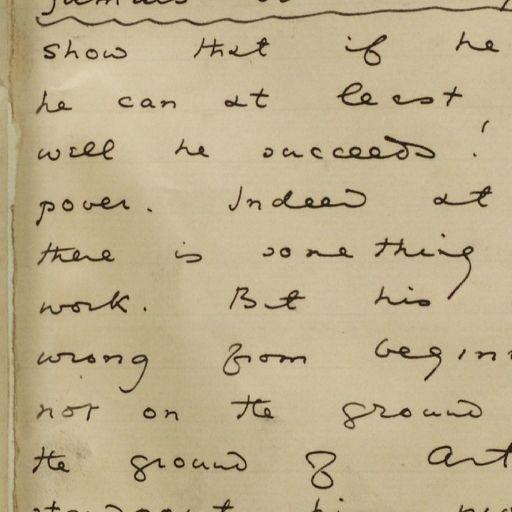 show that if he
he can at least
well he succeeds!
power. Indeed at
there is something
work. But his
wrong from begin
not on the ground
the ground of Art